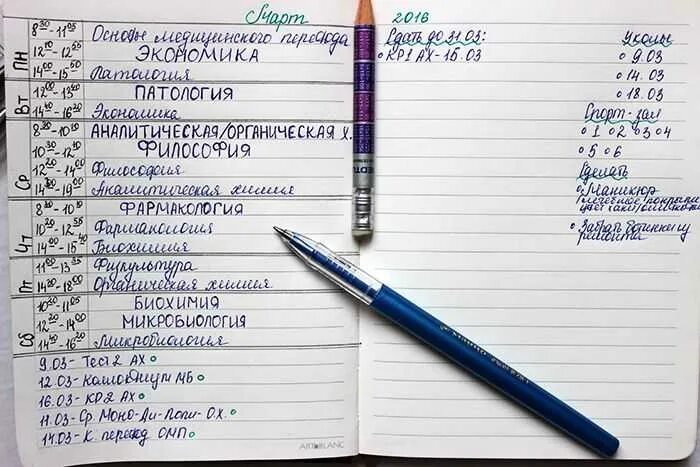 Март
ПН
8³⁰-11⁰⁵ Основы медицинского перевода
12⁰⁰-12⁵⁵ ЭКОНОМИКА
14⁰⁰-15⁵⁰ Патология
Вт
12⁰⁰-13⁴⁰ ПАТОЛОГИЯ
14⁴⁰-16²⁰ Экономика
Ср
8³⁰-10²⁰ АНАЛИТИЧЕСКАЯ/ОРГАНИЧЕСКАЯ Х.
10³⁰-12¹⁰ ФИЛОСОФИЯ
12²⁰-14⁰⁰ Философия
14³⁰-19⁰⁰ Аналитическая химия
Чт
8³⁰-10¹⁰ ФАРМАКОЛОГИЯ
10²⁰-12⁵⁵ Фармакология
14⁰⁰-15⁴⁰ Биохимия
Пт
11⁰⁰-13³⁵ Физкультура
14²⁰-18⁰⁰ Органическая химия
Сб
10²⁰-11⁰⁵ БИОХИМИЯ
12²⁰-14⁰⁰ МИКРОБИОЛОГИЯ
14⁴⁰-16²⁰ Микробиология
9.03- Тест 2 АХ
12.03- Коллоквиум МБ
16.03- КР2 АХ
11.03-Ср. Моно-Ди-Поли- ОХ.
14.03- К. перевод ОМП
ARTBLANC
2016
Сдать до 31.03:
КР1 АХ-15.03
Уколы
9.03
14.03
18.03
Спорт-зал
1 2 3 4
5 6
Сделать
Маникюр
Забрать ботинки из
ремонта